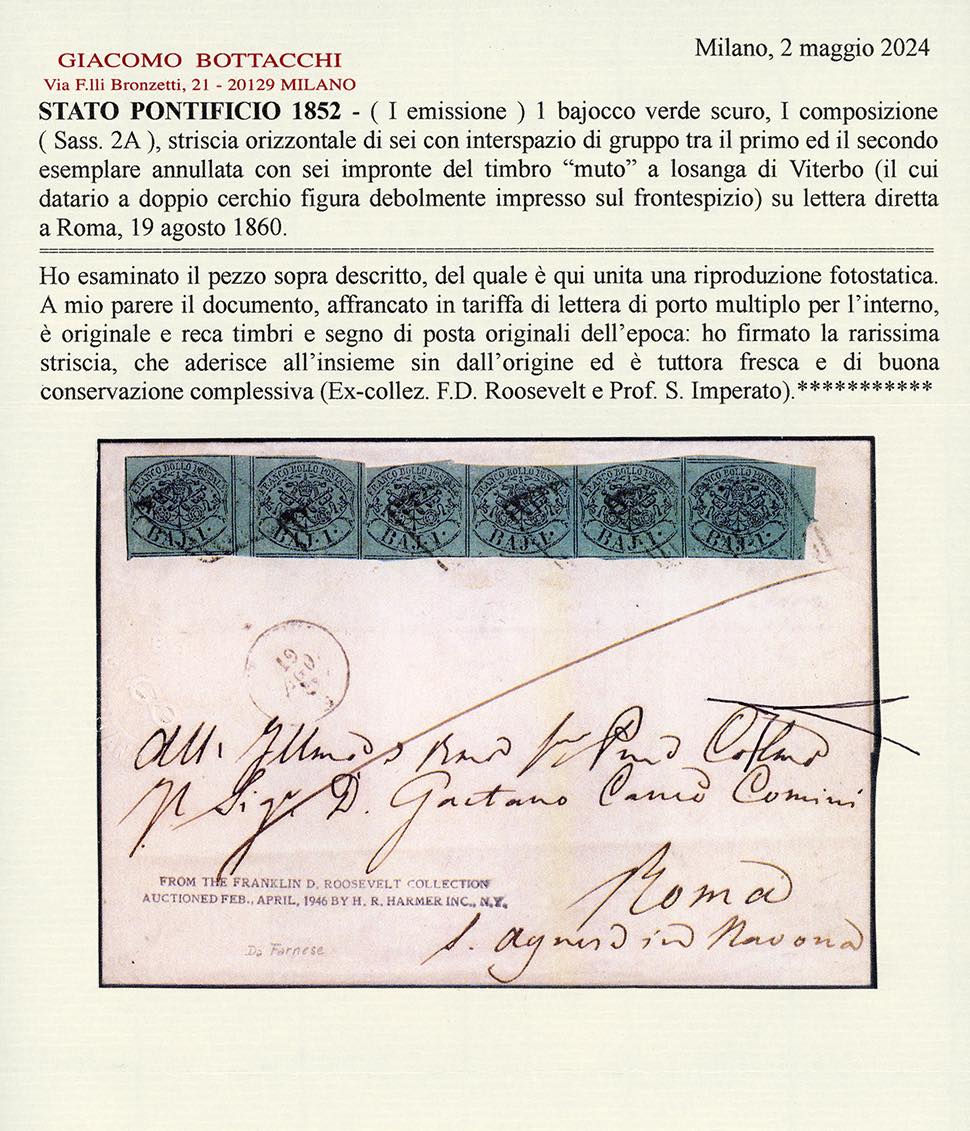 GIACOMO BOTTACCHI
Via F.lli Bronzetti, 21 - 20129 MILANO
Milano, 2 maggio 2024
STATO PONTIFICIO 1852 - ( I emissione ) 1 bajocco verde scuro, I composizione
( Sass. 2A ), striscia orizzontale di sei con interspazio di gruppo tra il primo ed il secondo
esemplare annullata con sei impronte del timbro “muto” a losanga di Viterbo (il cui
datario a doppio cerchio figura debolmente impresso sul frontespizio) su lettera diretta
a Roma, 19 agosto 1860.
Ho esaminato il pezzo sopra descritto, del quale è qui unita una riproduzione fotostatica.
A mio parere il documento, affrancato in tariffa di lettera di porto multiplo per l’interno,
è originale e reca timbri e segno di posta originali dell’epoca: ho firmato la rarissima
striscia, che aderisce all’insieme sin dall’origine ed è tuttora fresca e di buona
conservazione complessiva (Ex-collez. F.D. Roosevelt e Prof. S. Imperato).***********
FRANCO BOLLO POSTALE FRANCO BOLLO POSTALE FRANCO BOLLO POSTALE FRANCO BOLLO POSTALE FRANCO BOLLO POSTALE FRANCO BOLLO POSTALE
BAJ.1. BAJ.1. BAJ.1. BAJ.1. BAJ.1. BAJ.1.
19
AGO
Sigr. D. Gaetano Comini
Roma
FROM THE FRANKLIN D. ROOSEVELT COLLECTION
AUCTIONED FEB., APRIL, 1946 BY H. R. HARMER INC., N.Y.
S. Agnese in Navona
Da Farnese